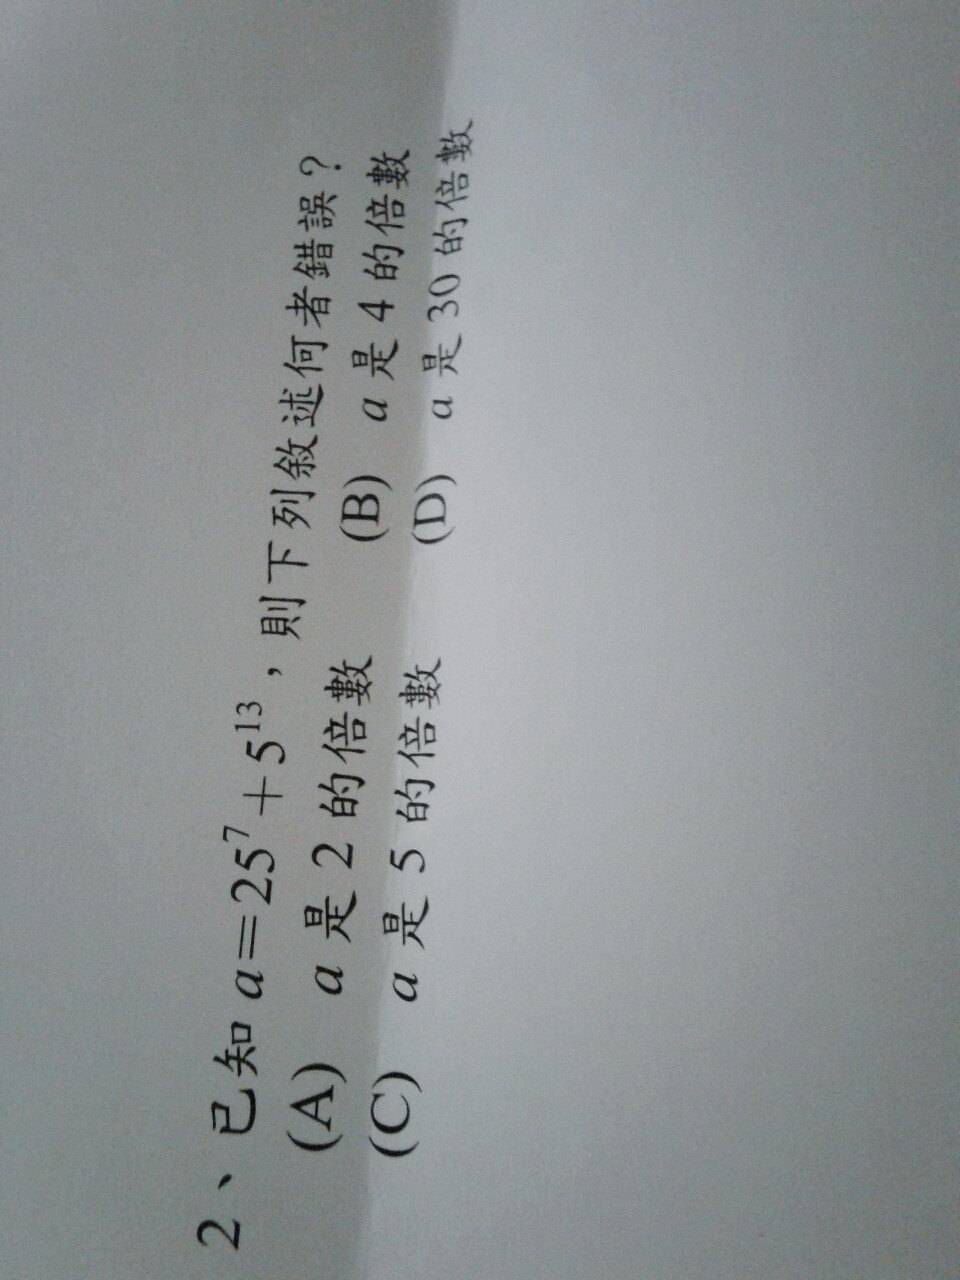 2、已知 a=25⁷+5¹³，則下列敘述何者錯誤？
(A) a 是 2 的倍數 (B) a 是 4 的倍數
(C) a 是 5 的倍數 (D) a 是 30 的倍數